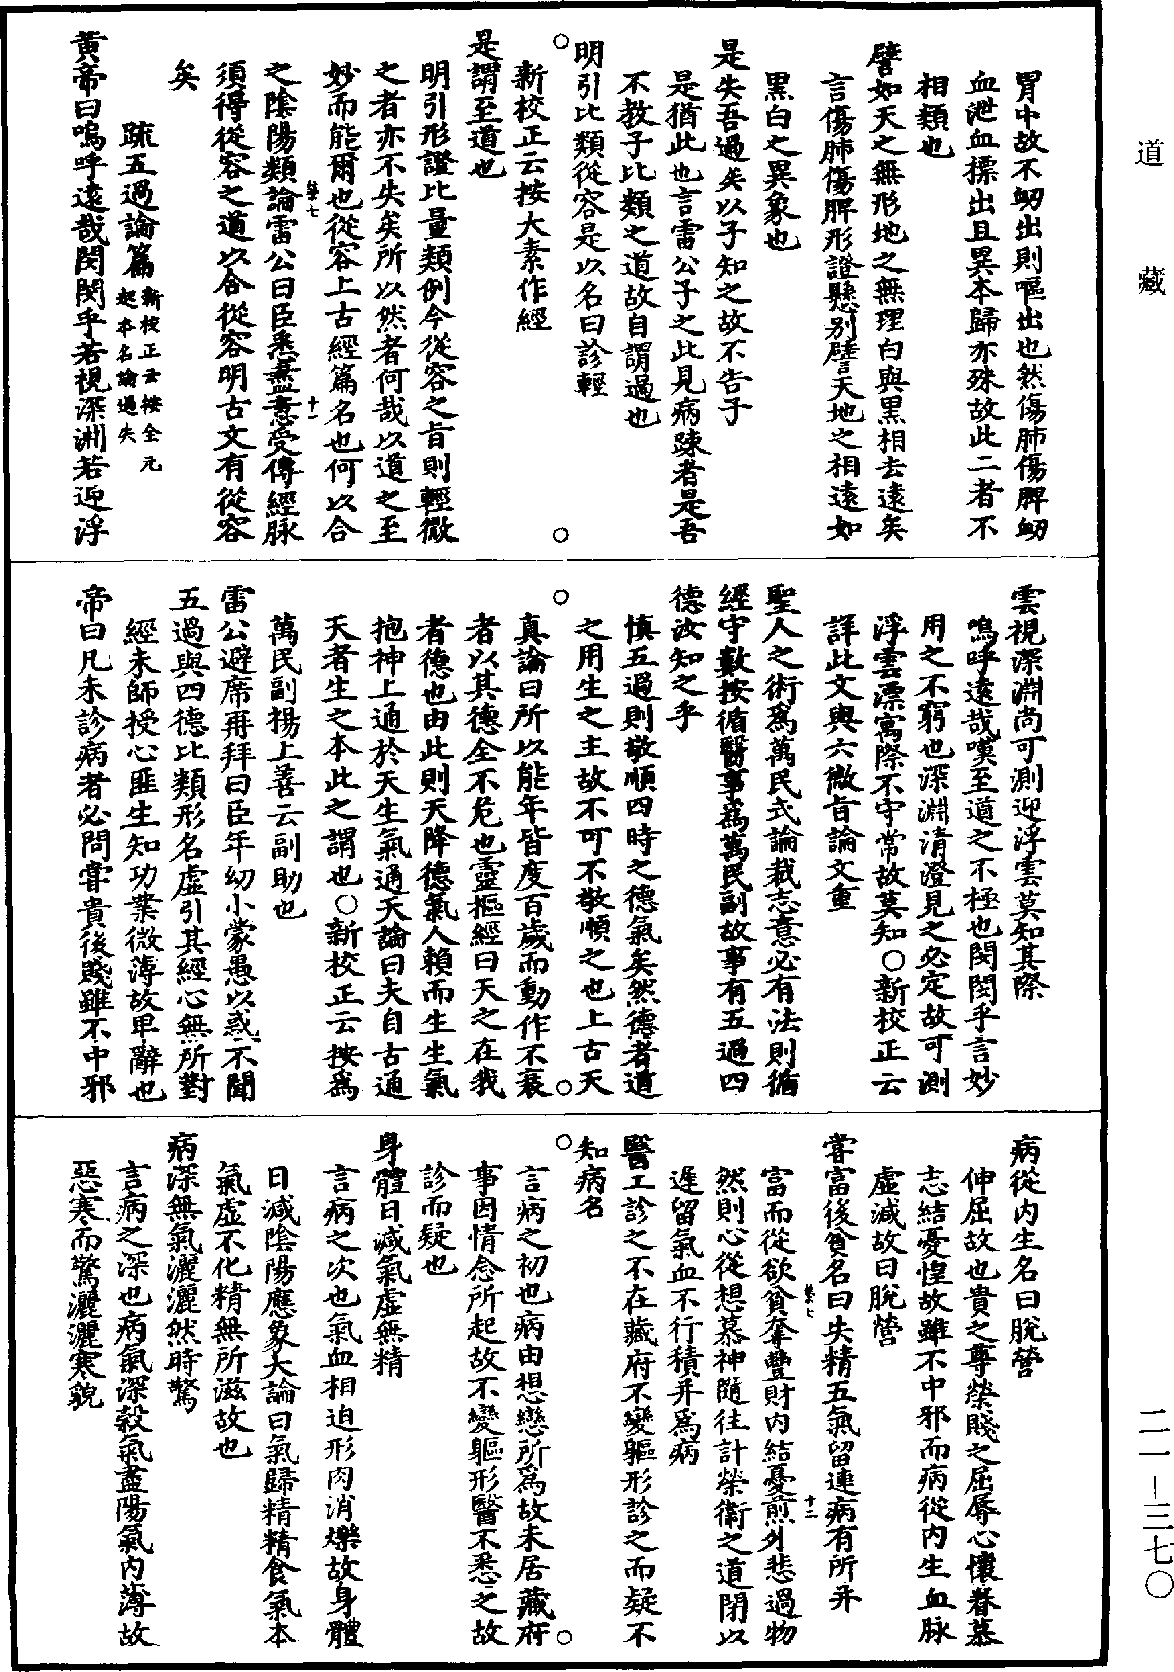 道藏
胃中故不衂出則嘔出也然傷肺傷脾衂
血泄血摽出且異本歸亦殊故此二者不
相類也
譬如天之無形地之無理白與黑相去遠矣
言傷肺傷脾形證懸別譬天地之相遠如
黑白之異象也
是失吾過矣以子知之故不告子
是猶此也言雷公子之此見病踈者是吾
不教子比類之道故自謂過也
明引比類從容是以名曰診輕
新校正云按大素作經
是謂至道也
明引形證比量類例今從容之旨則輕微
之者亦不失矣所以然者何哉以道之至
妙而能爾也從容上古經篇名也何以合
之陰陽類論雷公曰臣悉盡意受傳經脉
須得從容之道以合從容明古文有從容
矣
疏五過論篇新校正云按全元
起本名論過失
黃帝曰嗚呼遠哉閔閔乎若視深淵若迎浮
雲視深淵尚可測迎浮雲莫知其際
嗚呼遠哉嘆至道之不極也閔閔乎言妙
用之不窮也深淵清澄見之必定故可測
浮雲漂寓際不守常故莫知○新校正云
詳此文與六微旨論文重
聖人之術爲萬民式論裁志意必有法則循
經守數按循醫事爲萬民副故事有五過四
德汝知之乎
慎五過則敬順四時之德氣矣然德者道
之用生之主故不可不敬順之也上古天
真論曰所以能年皆度百歲而動作不衰
者以其德全不危也靈樞經曰天之在我
者德也由此則天降德氣人賴而生生氣
抱神上通於天生氣通天論曰夫自古通
天者生之本此之謂也○新校正云按爲
萬民副楊上善云副助也
雷公避席再拜曰臣年幼小蒙愚以惑不聞
五過與四德比類形名虛引其經心無所對
經未師授心匪生知功業微薄故卑辭也
帝曰凡未診病者必問甞貴後賤雖不中邪
病從内生名曰脫營
伸屈故也貴之尊榮賤之屈辱心懷眷慕
志結憂惶故雖不中邪而病從内生血脉
虛減故曰脫營
甞富後貧名曰失精五氣留連病有所并
富而從欲貧奪豐財内結憂煎外悲過物
然則心從想慕神隨往計榮衛之道閉以
遲留氣血不行積并爲病
醫工診之不在藏府不變軀形診之而疑不
知病名
言病之初也病由想戀所爲故未居藏府
事因情念所起故不變軀形醫不悉之故
診而疑也
身體日減氣虛無精
言病之次也氣血相迫形肉消爍故身體
日減陰陽應象大論曰氣歸精精食氣本
氣虛不化精無所滋故也
病深無氣灑灑然時驚
言病之深也病氣深穀氣盡陽氣内薄故
惡寒而驚灑灑寒貌
二一－三七〇